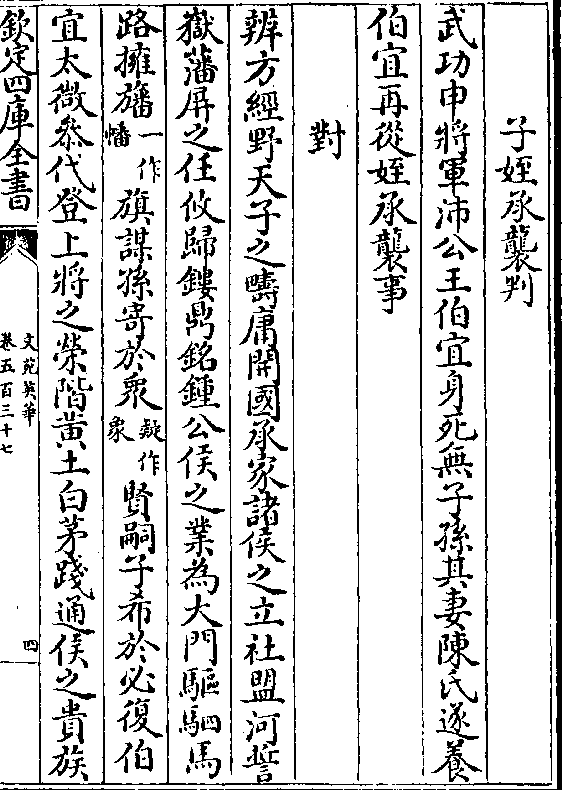 子姪承襲判
武功申將軍沛公王伯宜身死無子孫其妻陳氏遂養
伯宜再從姪承襲事
對
辨方經野天子之疇庸開國承家諸侯之立社盟河誓
嶽藩屏之任攸歸鏤鼎銘鍾公侯之業為大門驅駟馬
路擁旛一作幡旗謀孫寄於衆疑作象賢嗣子希於必復伯
宜太微叅代登上將之榮階黄土白茅踐通侯之貴族
欽定四庫全書
文苑英華
卷五百三十七
四